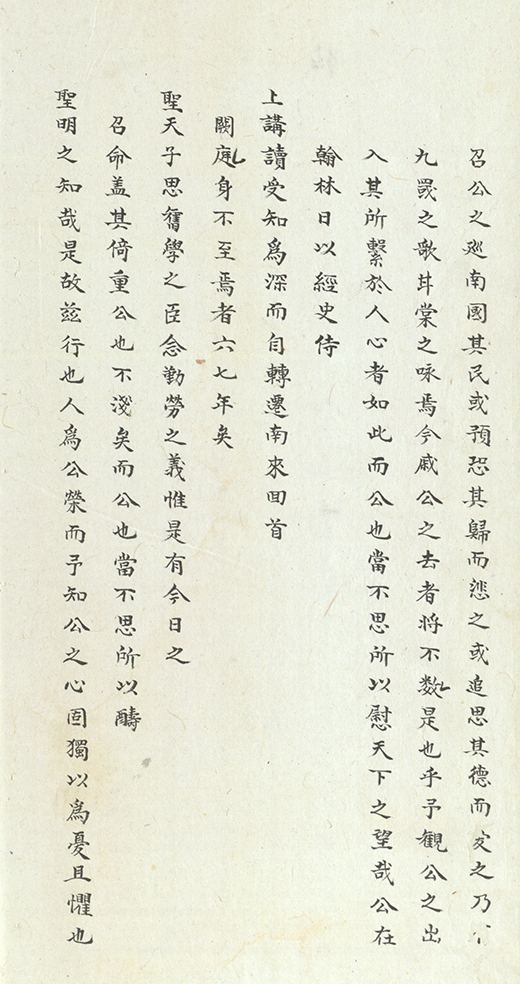 召公之廵南國其民或預恐其歸而悲之或追思其德而安之乃有
九罭之歌甘棠之咏焉今戚公之去者将不数是也乎予觀公之出
入其所繫於人心者如此而公也當不思所以慰天下之望哉公在
翰林日以經史侍
上講讀受知為深而自轉遷南來回首
闕庭身不至焉者六七年矣
聖天子思舊學之臣念勤勞之義惟是有今日之
召命盖其倚重公也不淺矣而公也當不思所以醻
聖明之知哉是故茲行也人為公榮而予知公之心固獨以為憂且懼也